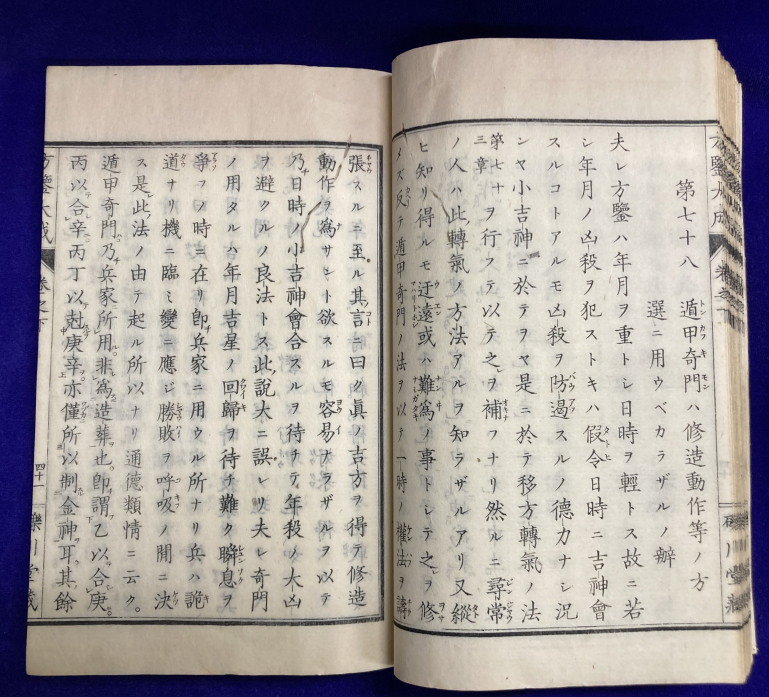 方鑒大成
卷之下
礫川堂藏
第七十八　遁甲奇門ハ修造動作等ノ方
選ニ用ウベカラザルノ辨
夫レ方鑒ハ年月ヲ重トシ日時ヲ輕トス故ニ若
シ年月ノ凶殺ヲ犯ストキハ假令日時ニ吉神會
スルコトアルモ凶殺ヲ防遏スルノ德力ナシ況
ンヤ小吉神ニ於テヲヤ是ニ於テ移方轉氣ノ法
第七十三章ヲ行フテ以テ之ヲ補フナリ然ルニ尋常
ノ人ハ此轉氣ノ方法アルヲ知ラザルアリ又縱
ヒ知リ得ルモ迂遠或ハ難爲ノ事トシテ之ヲ修
メズ反テ遁甲奇門ノ法ヲ以テ一時ノ權法ヲ譸
張スルニ至ル其言ニ曰ク眞ノ吉方ヲ得テ修造
動作ヲ爲サント欲スルモ容易ナラザルヲ以テ
乃チ日時ノ小吉神會合スルヲ待チテ年殺ノ大凶
ヲ避クルノ良法トス此說大ニ誤レリ夫レ奇門
ノ用タルハ年月吉星ノ回歸ヲ待チ難ク瞬息ヲ
爭フノ時ニ在リ卽兵家ニ用ウル所ナリ兵ハ詭
道ナリ機ニ臨ミ變ニ應ジ勝敗ヲ呼吸ノ閒ニ決
ス是此法ノ由テ起ル所以ナリ通德類情ニ云ク
遁甲奇門乃兵家所用非爲造葬也卽謂乙以合庚
丙以合辛丙丁以尅庚辛亦僅所以制金神耳其餘
方鑒大成
卷之下
四十一
礫川堂藏